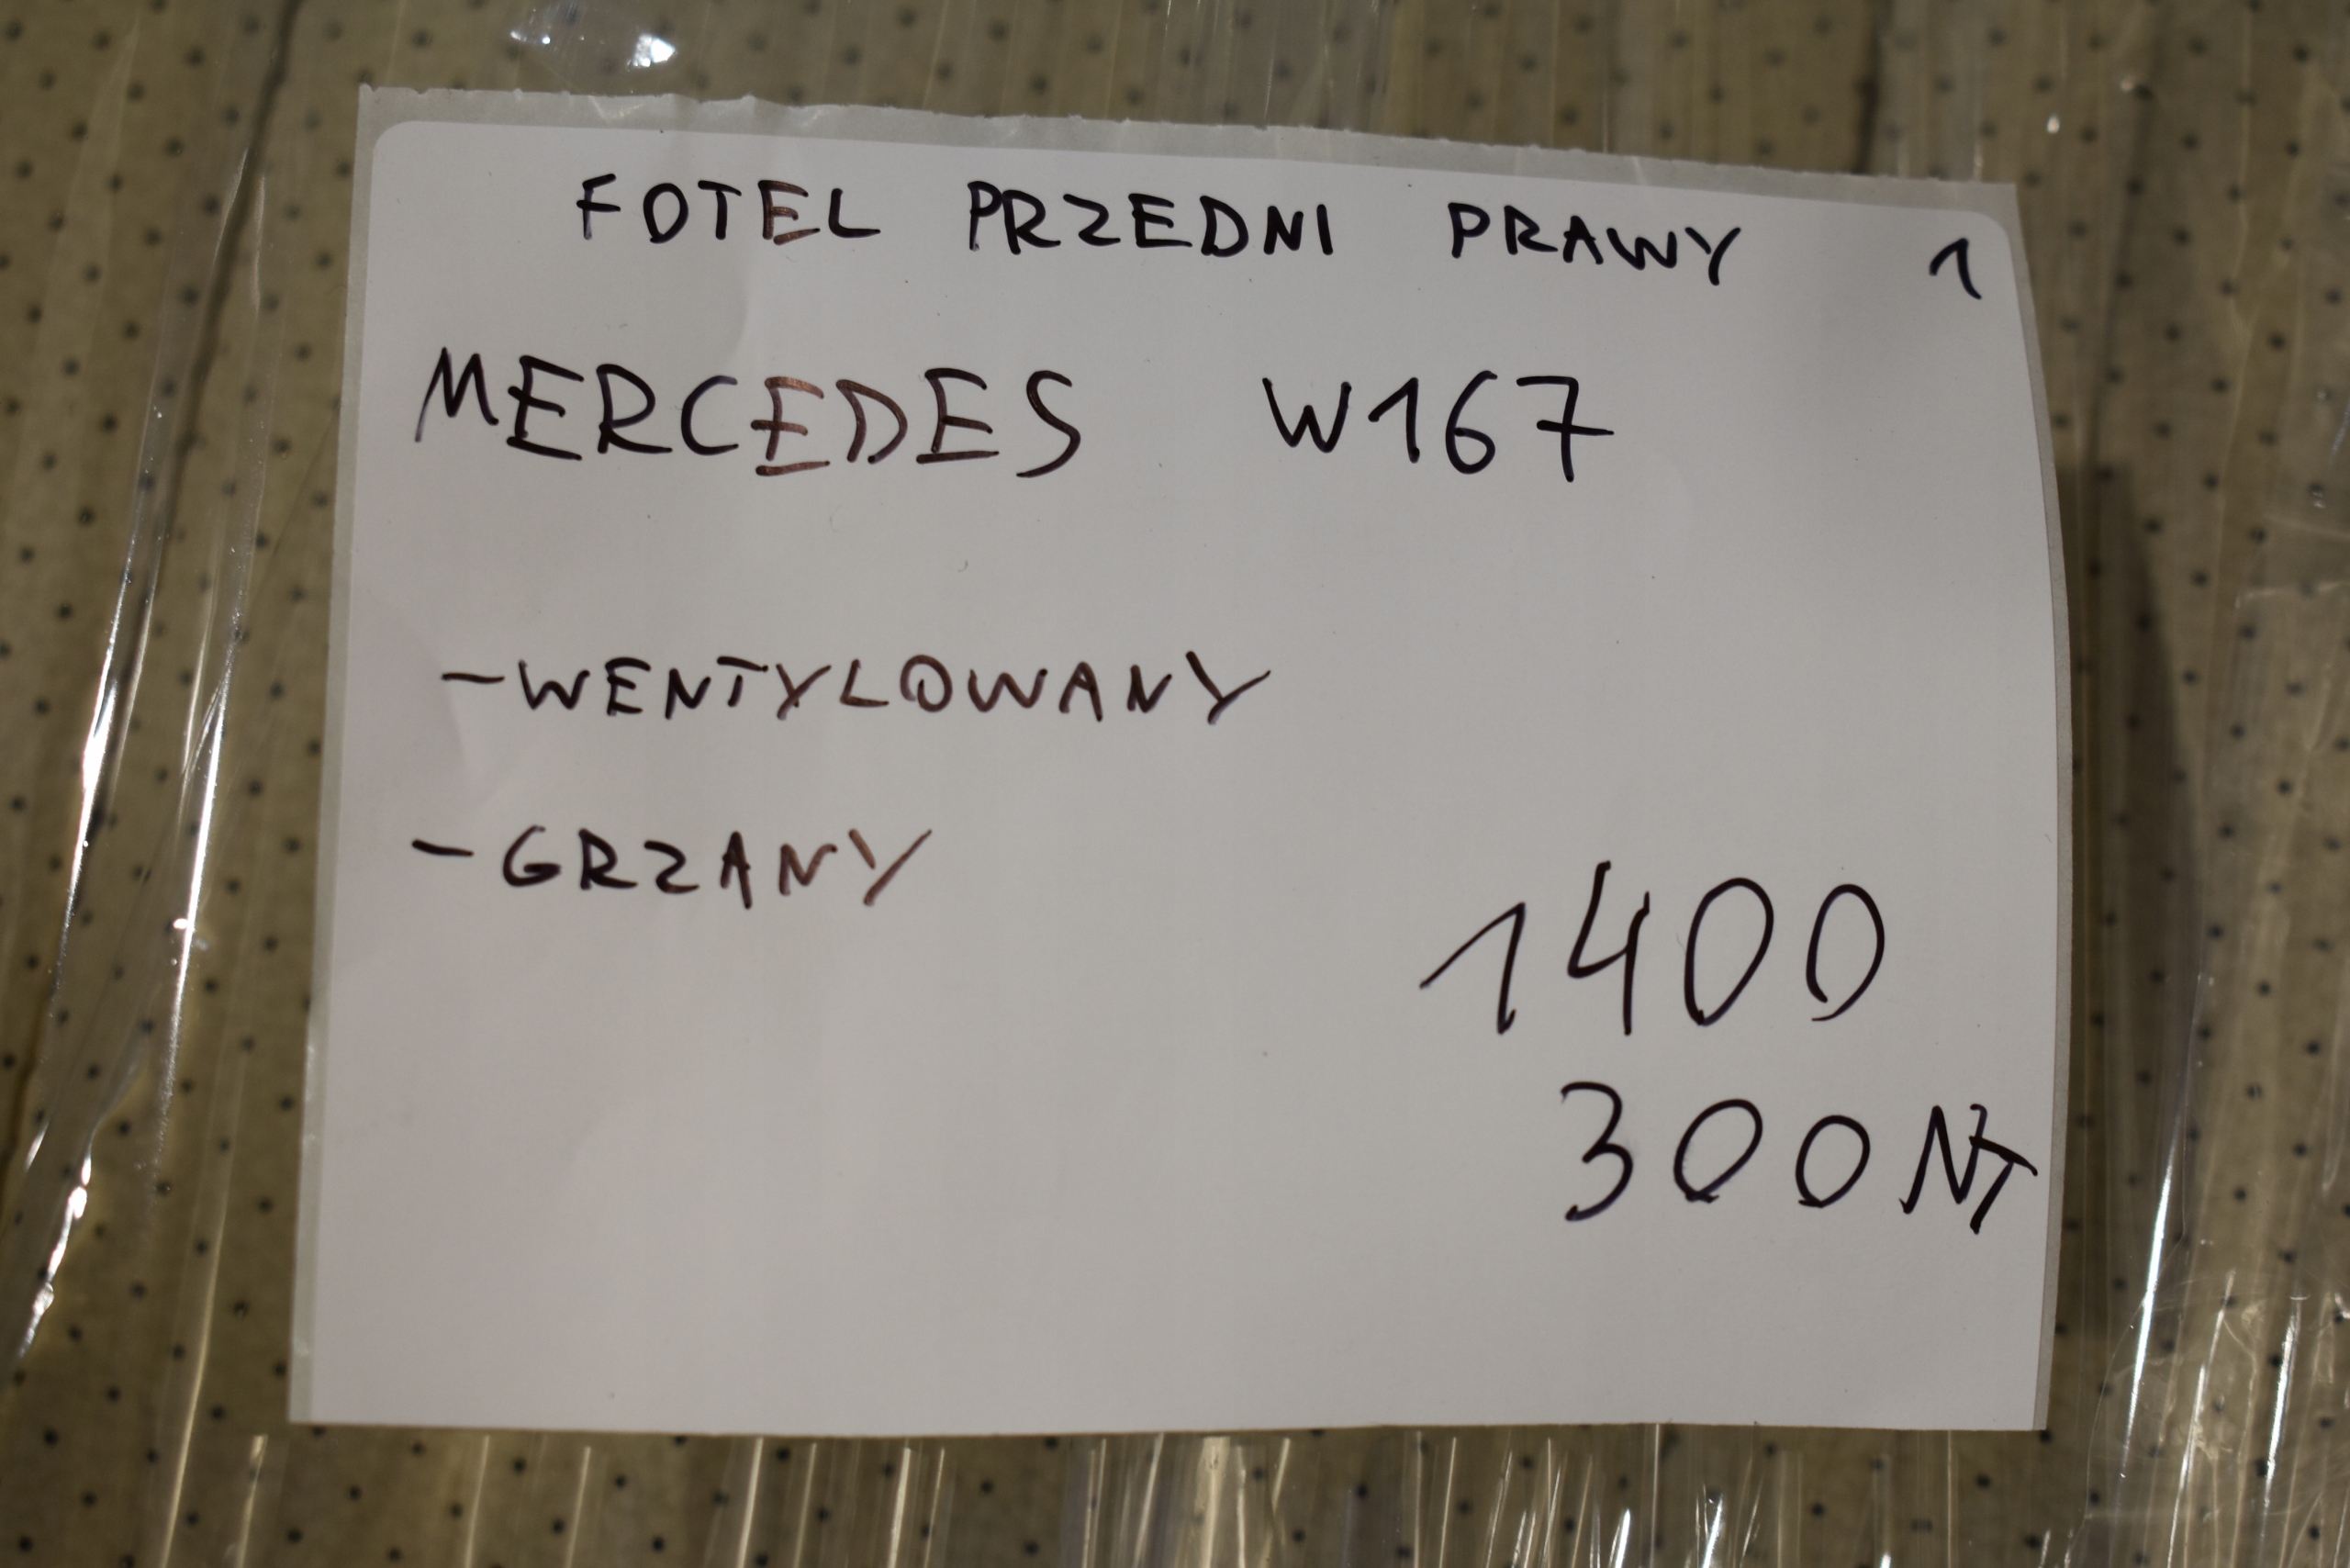 FOTEL PRZEDNI PRAWY 1
MERCEDES W167
-WENTYLOWANY
-GRZANY
1400
300 NT